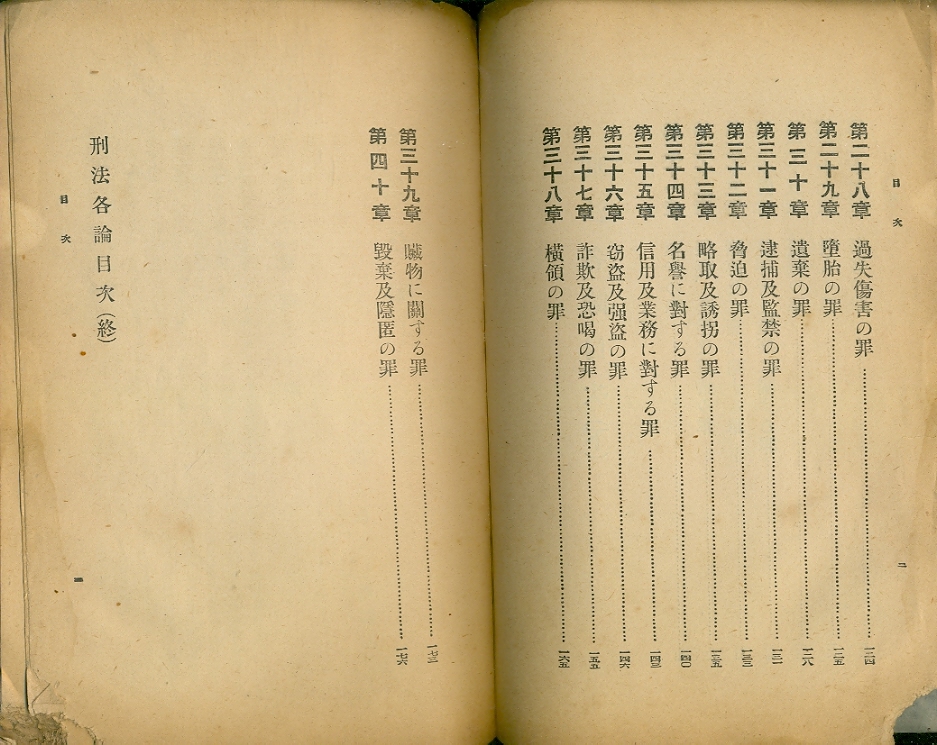 目次
二
第二十八章 過失傷害の罪 一二四
第二十九章 墮胎の罪 一二五
第三十章 遺棄の罪 一二八
第三十一章 逮捕及監禁の罪 一三一
第三十二章 脅迫の罪
第三十三章 略取及誘拐の罪 一三五
第三十四章 名譽に對する罪 一四〇
第三十五章 信用及業務に對する罪
第三十六章 窃盜及强盜の罪 一四六
第三十七章 詐欺及恐喝の罪 一五五
第三十八章 橫領の罪 一六五
第三十九章 贓物に關する罪
第四十章 毀棄及隱匿の罪 一七六
刑法各論目次(終)
目次
三